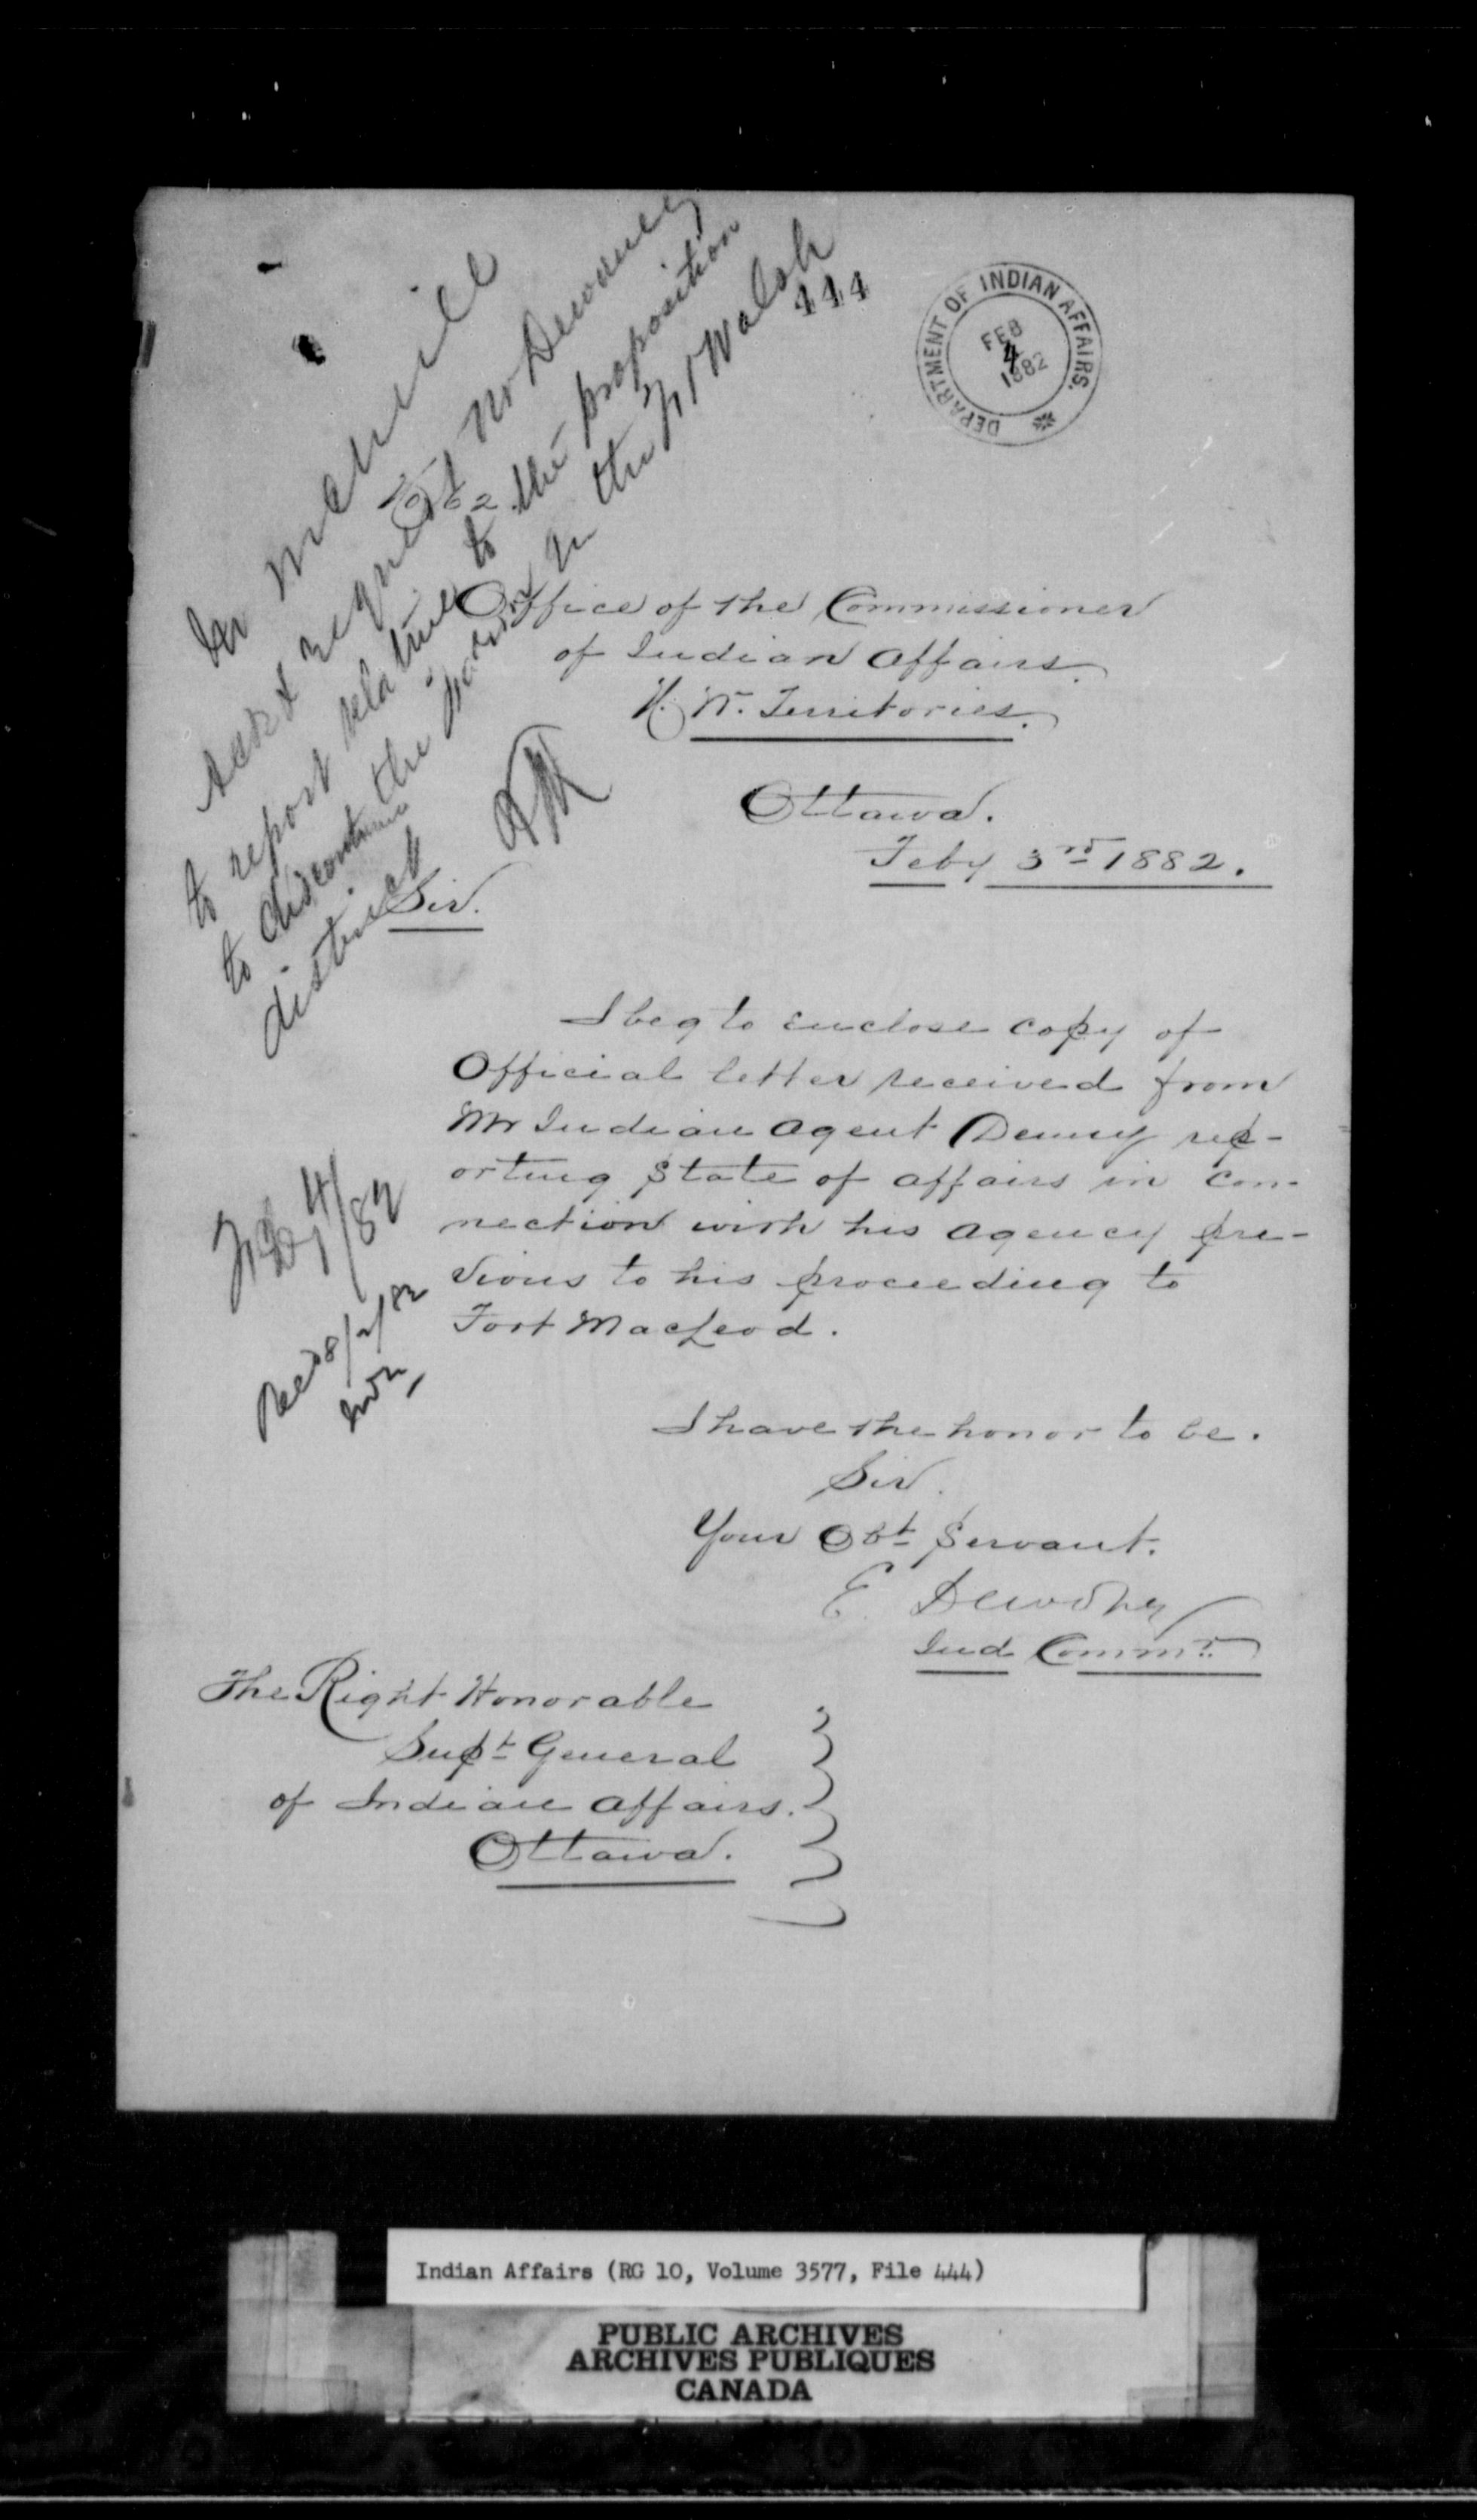 Mr McNeill
Ack & request Mr Dewdney
to report relative to the proposition
to discontinue the
in the Ft Walsh
district
444
DEPARTMENT OF INDIAN AFFAIRS.
FEB
4
1882
Office of the Commissioner
of Indian Affairs.
N. W. Territories.
Ottawa.
Feby 3rd 1882.
Sir.
I beg to enclose copy of
Official letter received from
Mr Indian Agent Denny rep-
orting State of affairs in con-
nection with his Agency pre-
vious to his proceeding to
Fort MacLeod.
Feby 4/82
Recd 8/2/82
I have the honor to be.
Sir.
Your Obt Servant.
E Dewdney
Ind Commr.
The Right Honorable
Supt General
of Indian Affairs.
Ottawa.
Indian Affairs (RG 10, Volume 3577, File 444)
PUBLIC ARCHIVES
ARCHIVES PUBLIQUES
CANADA